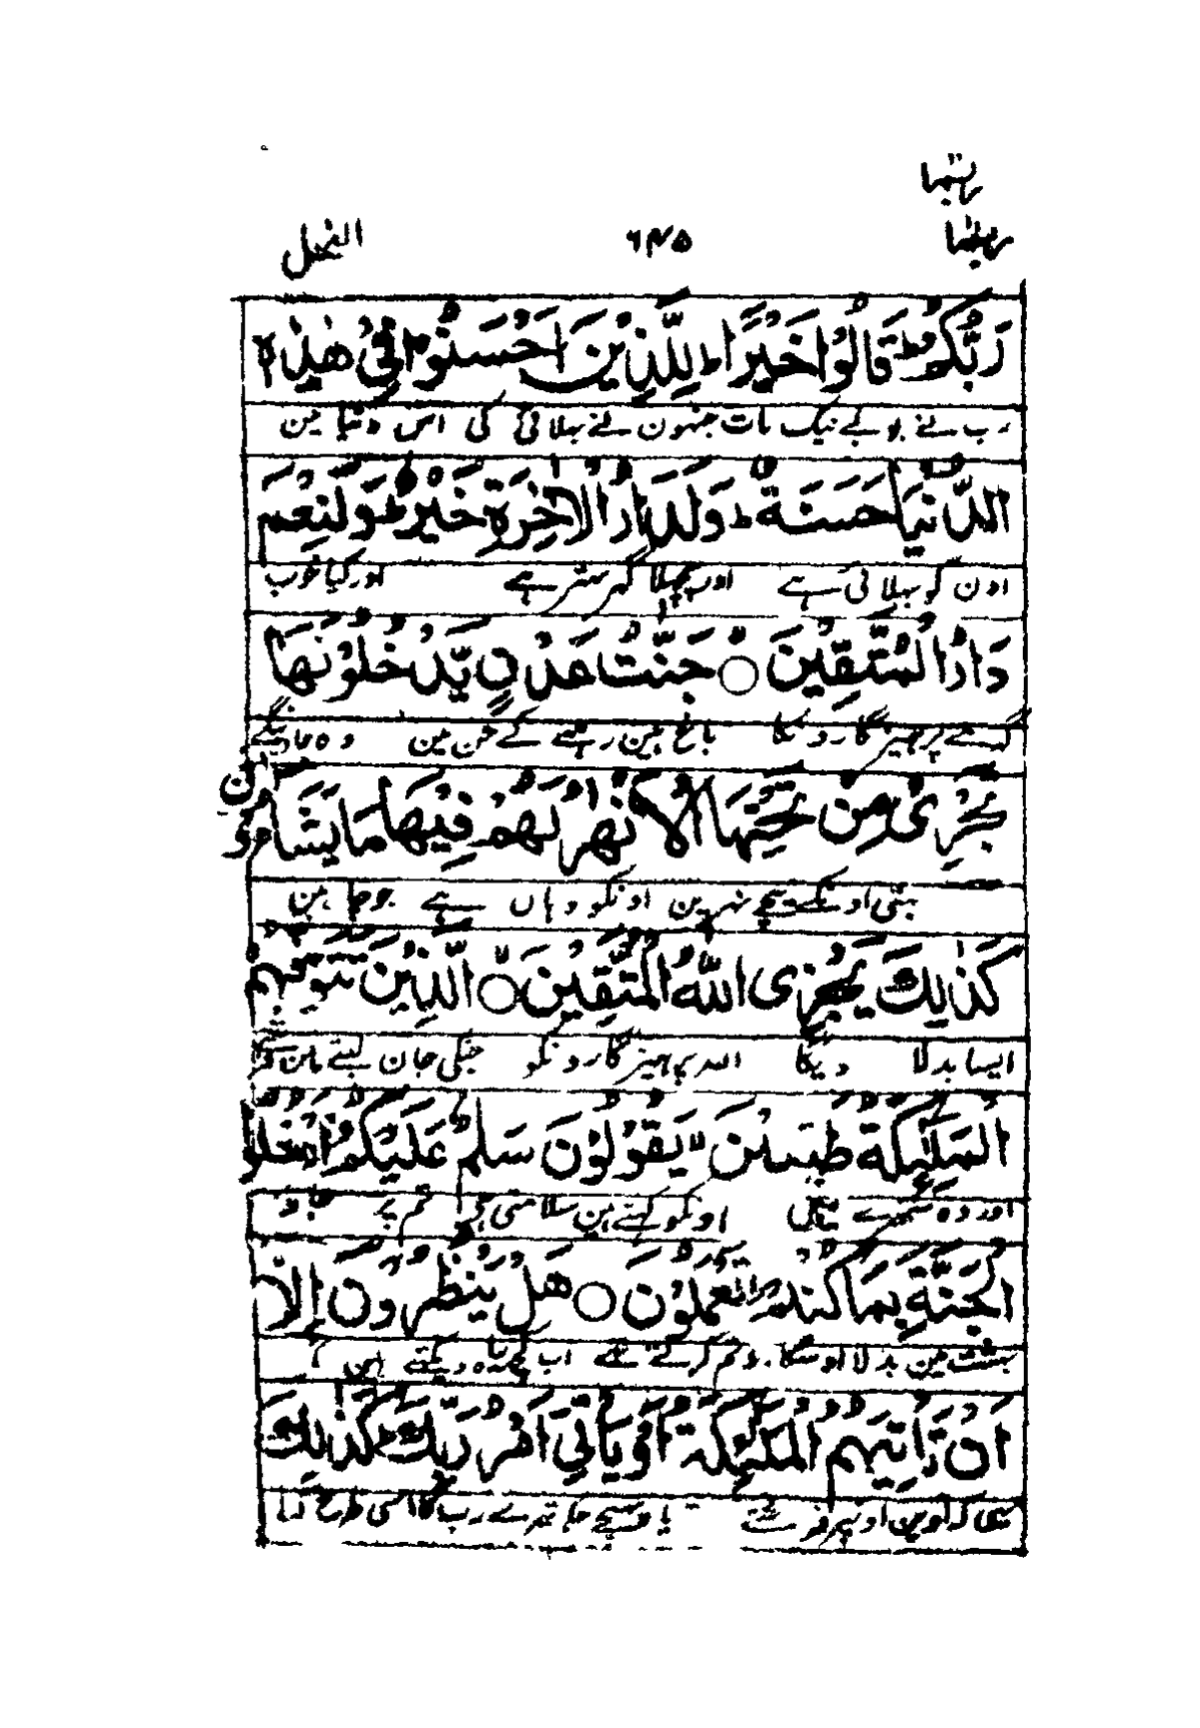 ربما
النحل ٦٤٥ ربما
رَبُّكُمْ ط قَالُوا خَيْرًا ط لِلَّذِيْنَ اَحْسَنُوْا فِيْ هٰذِهِ
رب نے بولے نیک بات جنہون نے بہلائی کی اس دنیا مین
الدُّنْيَا حَسَنَةٌ ط وَلَدَارُ الْاٰخِرَةِ خَيْرٌ ط وَلَنِعْمَ
اون کو بہلائی ہے اور پچھلا گہر بہتر ہے اور کیا خوب
دَارُ الْمُتَّقِيْنَ ○ جَنّٰتُ عَدْنٍ يَّدْخُلُوْنَهَا
گہر ہے پرہیزگارونکا باغ ہین رہنے کے جن مین وہ جاوینگے
تَجْرِيْ مِنْ تَحْتِهَا الْاَنْهٰرُ لَهُمْ فِيْهَا مَا يَشَاءُوْنَ
بہتی اونکے نیچے نہرین اونکو وہان ہے جو چاہین
كَذٰلِكَ يَجْزِى اللّٰهُ الْمُتَّقِيْنَ ○ الَّذِيْنَ تَتَوَفّٰهُمُ
ایسا بدلا دیگا اللہ پرہیزگارونکو جنکی جان لیتے ہین
الْمَلٰٓئِكَةُ طَيِّبِيْنَ يَقُوْلُوْنَ سَلٰمٌ عَلَيْكُمُ ادْخُلُوا
اور وہ ستہرے ہین اونکو کہتے ہین سلامتی ہے تم پر جاؤ
الْجَنَّةَ بِمَا كُنْتُمْ تَعْمَلُوْنَ ○ هَلْ يَنْظُرُوْنَ اِلَّا
بہشت مین بدلا اوسکا جو تم کرتے تہے اب کچھ وہ دیکتے ہین
اَنْ تَاْتِيَهُمُ الْمَلٰٓئِكَةُ اَوْ يَاْتِيَ اَمْرُ رَبِّكَ ط كَذٰلِكَ
یہی کہ آوین اونپر فرشتے یا پہنچے حکم تیرے رب کا اسی طرح کیا